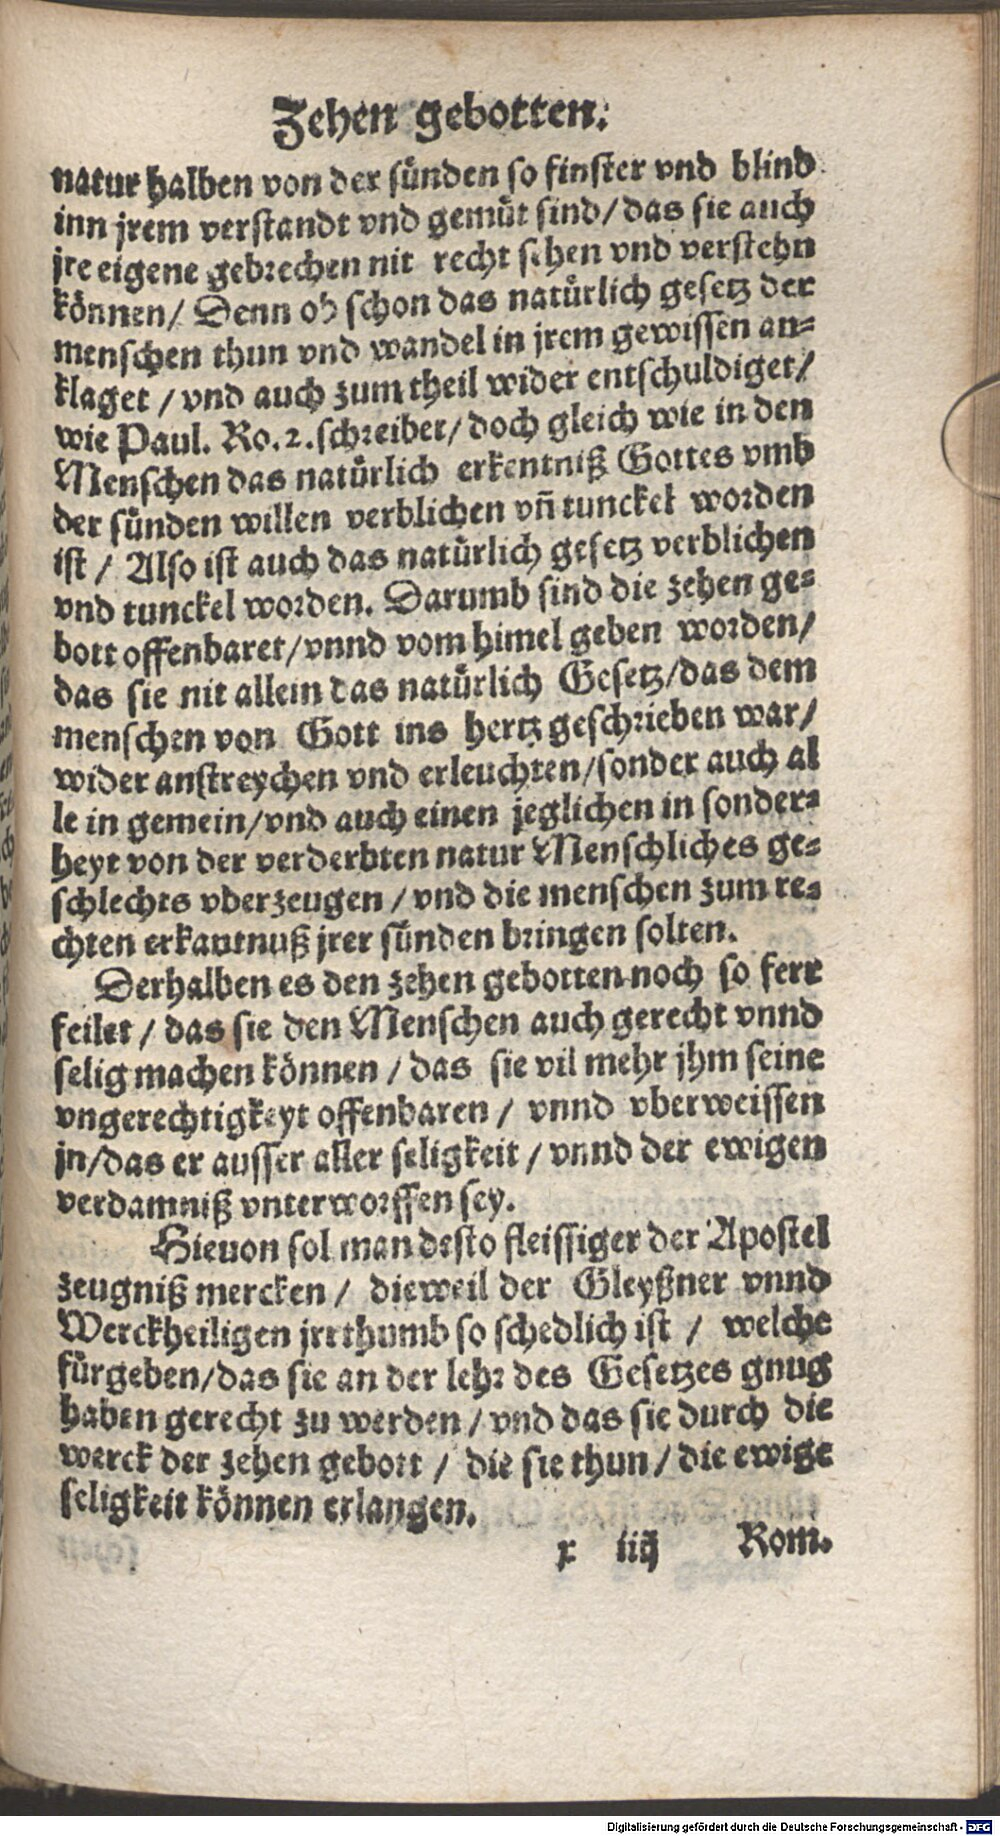 Zehen gebotten.
natur halben von der sünden so finster vnd blind
inn jrem verstandt vnd gemüt sind/das sie auch
jre eigene gebrechen nit recht sehen vnd verstehn
können/ Denn ob schon das natürlich gesetz der
menschen thun vnd wandel in jrem gewissen an⸗
klaget / vnd auch zum theil wider entschuldiget/
wie Paul. Ro. 2. schreibet/ doch gleich wie in den
Menschen das natürlich erkentniß Gottes vmb
der sünden willen verblichen vñ tunckel worden
ist / Also ist auch das natürlich gesetz verblichen
vnd tunckel worden. Darumb sind die zehen ge⸗
bott offenbaret/vnnd vom himel geben worden/
das sie nit allein das natürlich Gesetz/das dem
menschen von Gott ins hertz geschrieben war/
wider anstreychen vnd erleuchten/sonder auch al
le in gemein/vnd auch einen jeglichen in sonder⸗
heyt von der verderbten natur Menschliches ge⸗
schlechts vberzeugen / vnd die menschen zum re⸗
chten erkantnuß jrer sünden bringen solten.
Derhalben es den zehen gebotten noch so ferr
feilet / das sie den Menschen auch gerecht vnnd
selig machen können / das sie vil mehr jhm seine
vngerechtigkeyt offenbaren / vnnd vberweissen
jn/das er ausser aller seligkeit / vnnd der ewigen
verdamniß vnterworffen sey.
Hieuon sol man desto fleissiger der Apostel
zeugniß mercken / dieweil der Gleyßner vnnd
Werckheiligen jrrthumb so schedlich ist / welche
fürgeben/das sie an der lehr des Gesetzes gnug
haben gerecht zu werden / vnd das sie durch die
werck der zehen gebott / die sie thun / die ewige
seligkeit können erlangen.
x iiij Rom.
Digitalisierung gefördert durch die Deutsche Forschungsgemeinschaft - DFG